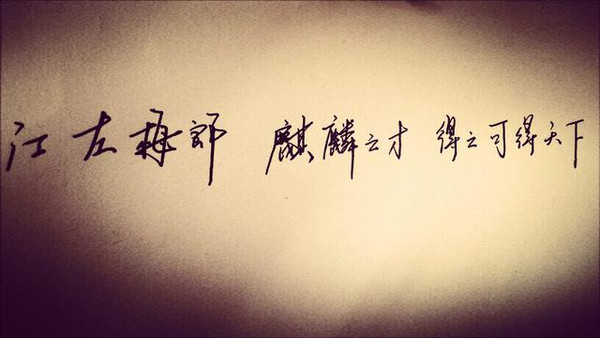 江左梅郎 麒麟之才 得之可得天下